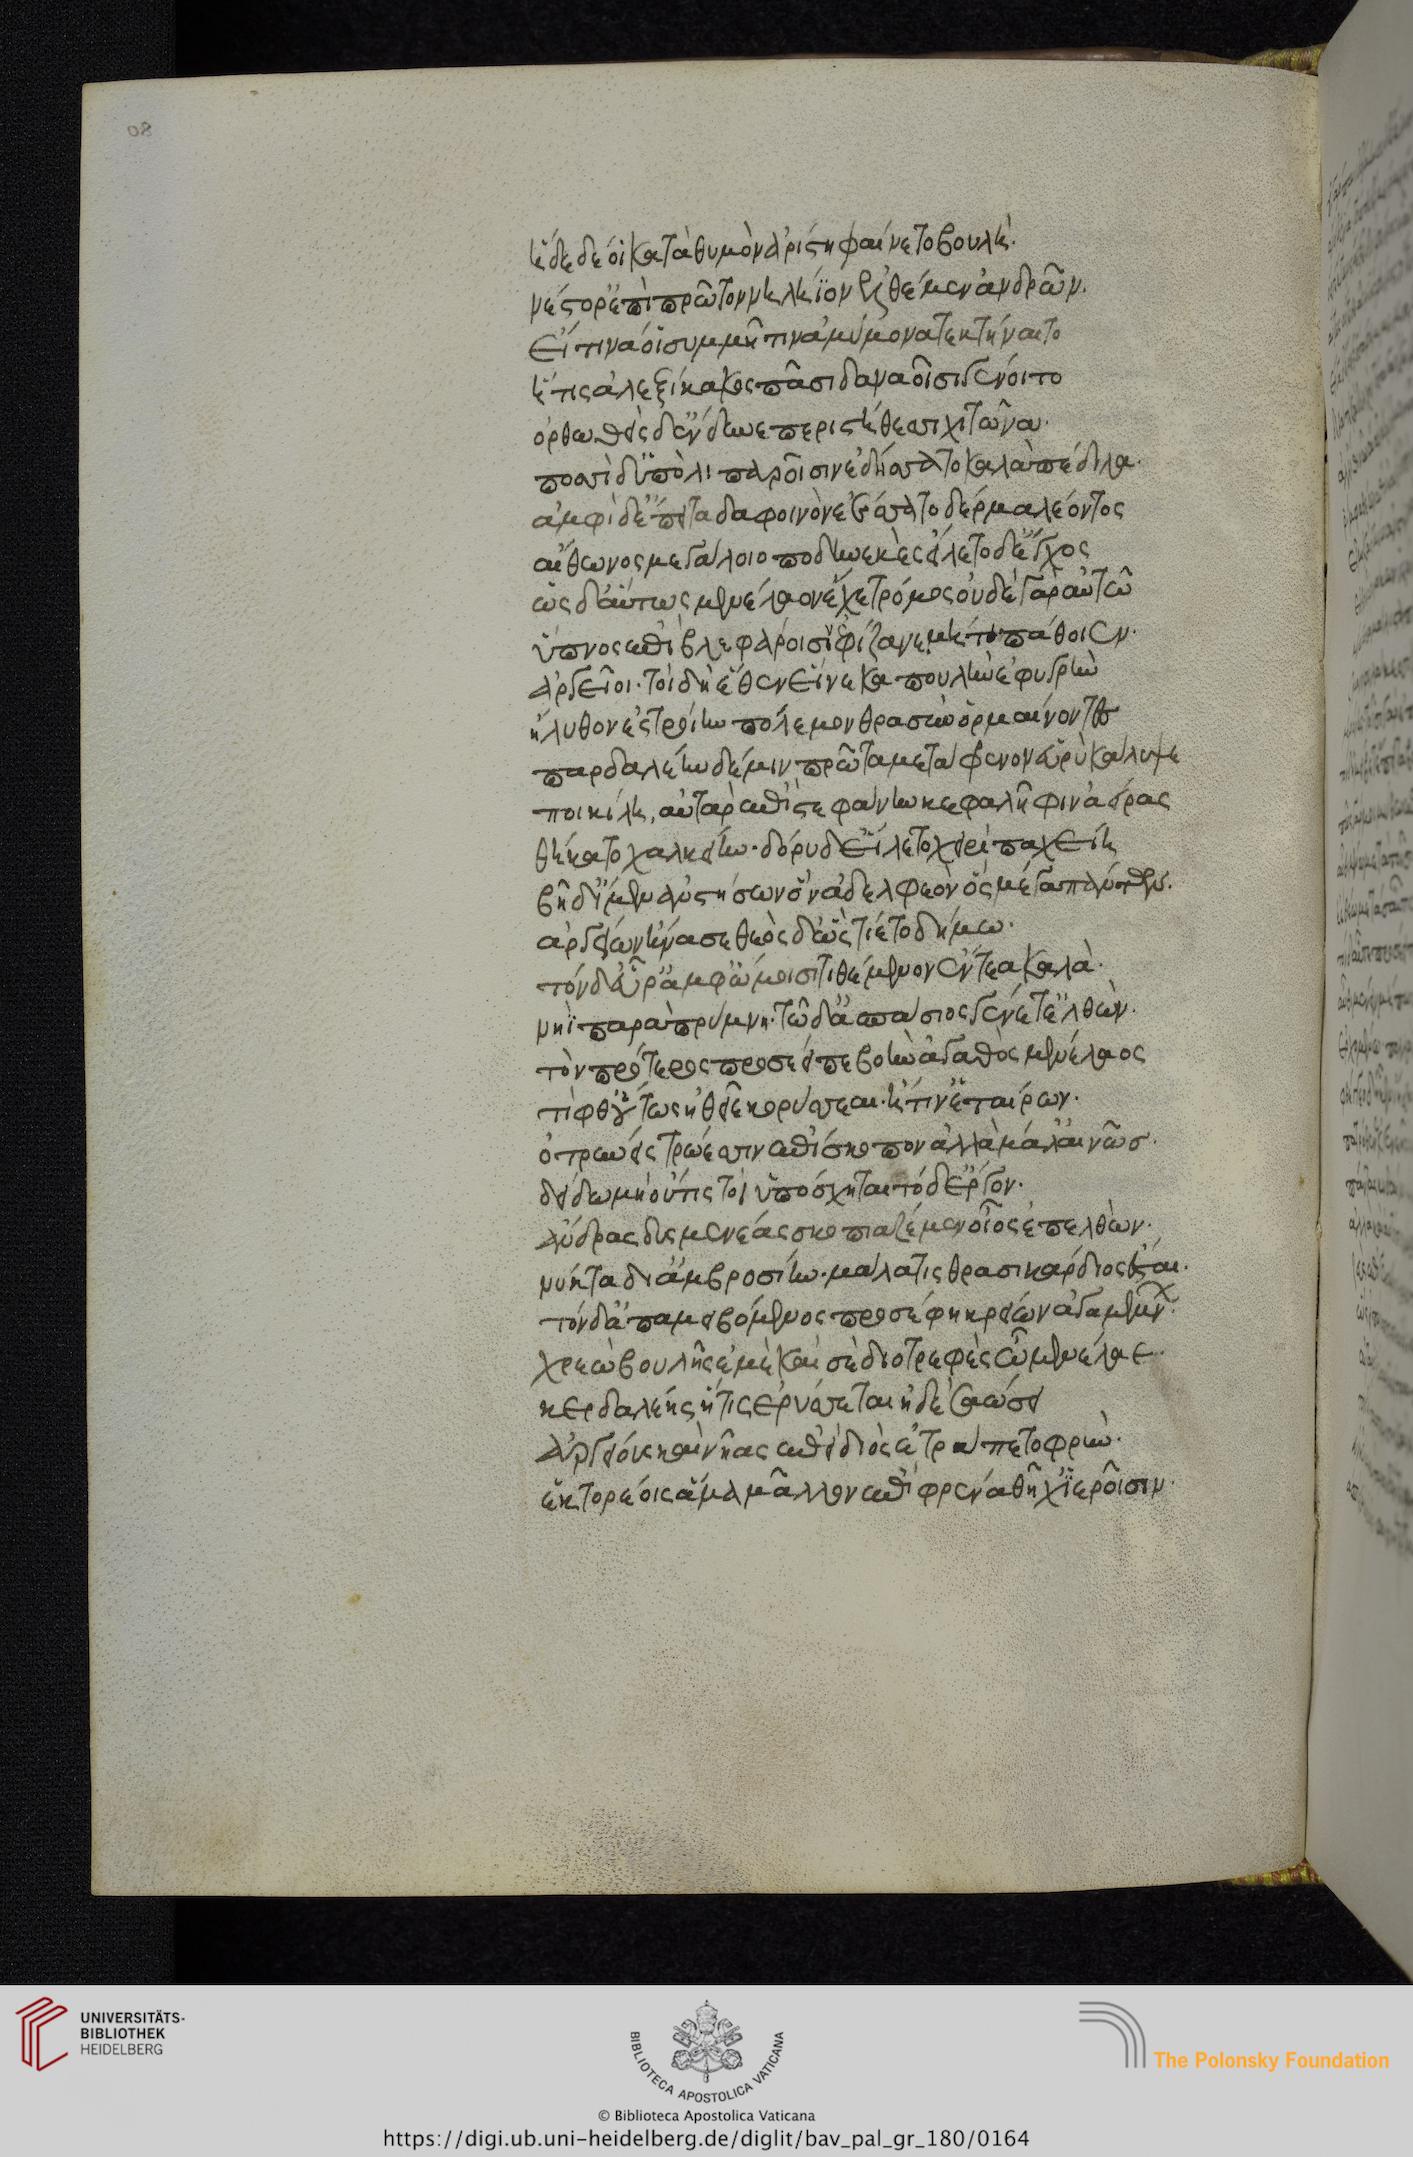 08
ἥδε δέ οἱ κατὰ θυμὸν ἀρίστη φαίνετο βουλὴ·
νέστορ' ἔπι πρῶτον νηλήϊον ἐλθέμεν ἀνδρῶν·
εἴ τινα οἱ συμμῆτιν ἀμύμονα τεκτήναιτο
ἥτις ἀλεξίκακος πᾶσι δαναοῖσι γένοιτο
ὀρθωθεὶς δ' ἔνδυνε περὶ στήθεσσι χιτῶνα·
ποσσὶ δ' ὑπὸ λιπαροῖσιν ἐδήσατο καλὰ πέδιλα·
ἀμφὶ δ' ἔπειτα δαφοινὸν ἑέσσατο δέρμα λέοντος
αἴθωνος μεγάλοιο ποδηνεκὲς εἵλετο δ' ἔγχος
ὣς δ' αὔτως μενέλαον ἔχε τρόμος οὐδὲ γὰρ αὐτῶ
ὕπνος ἐπὶ βλεφάροισιν ἐφίζανε, μή τι πάθοιεν·
ἀργεῖοι· τοὶ δὴ ἕθεν εἵνεκα πουλὺν ἐφ' υγρὴν
ἤλυθον ἐς τροίην πόλεμον θρασὺν ὁρμαίνοντες
παρδαλέην δέ μιν πρῶτα μετάφρενον εὐρὺ κάλυψε
ποικίλη, αὐτὰρ ἐπὶ στεφάνην κεφαλῆφιν ἀείρας
θήκατο χαλκείην· δόρυ δ' εἵλετο χειρὶ παχείη
βῆ δ' ἴμεν ἀνστήσων ὃν ἀδελφεὸν ὃς μέγα πάντων·
ἀργείων ἤνασσε θεὸς δ' ὣς τίετο δήμω·
τόν δ' εὗρ' ἀμφ' ὤμοισι τιθέμενον ἔντεα καλὰ·
νηῒ παρὰ πρύμνη· τῶ δ' ἀσπάσιος γένετ' ἐλθὼν·
τὸν πρότερος προσέειπε βοὴν ἀγαθὸς μενέλαος
τίφθ' οὕτως ἠθεῖε κορύσσεαι· ἤ τιν' ἑταίρων·
ὀτρυνέεις τρώεσσιν ἐπίσκοπον ἀλλὰ μάλ' αἰνῶς·
δείδω μὴ οὔτις τοι ὑπόσχηται τόδε ἔργον·
ἄνδρας δυσμενέας σκοπιαζέμεν οἶος ἐπελθὼν·
νύκτα δι' ἀμβροσίην· μάλα τις θρασικάρδιος ἔσται·
τόνδ' ἀπαμειβόμενος προσέφη κρείων ἀγαμέμνων·
χρεὼ βουλῆς ἐμὲ καὶ σὲ διοτρεφὲς ὦ μενέλαε·
κερδαλέης ἥτις ἐρύσσεται ἠδὲ σαώσει
ἀργείους καὶ νῆας ἐπεὶ διὸς ἐτράπετο φρὴν·
ἑκτορέοις ἄρα μᾶλλον ἐπὶ φρένα θῆχ' ἱεροῖσιν·
UNIVERSITÄTS-
BIBLIOTHEK
HEIDELBERG
BIBLIOTECA APOSTOLICA VATICANA
© Biblioteca Apostolica Vaticana
The Polonsky Foundation
https://digi.ub.uni-heidelberg.de/diglit/bav_pal_gr_180/0164